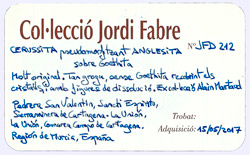 Col·lecció Jordi Fabre
CERUSSITA pseudomorfitzant ANGLESITA Nº JFD 212
sobre Goethita
Molt original, Tan groga, sense Goethita recobrint els
cristalls, amb figures de dissolució. Ex-col·lecció Alain Martaud
Pedrera San Valentín, Sancti Espíritu,
Serra minera de Cartagena - La Unión,
La Unión, Comarca Campo de Cartagena,
Región de Murcia, España
Trobat:
Adquisició: 15/05/2017